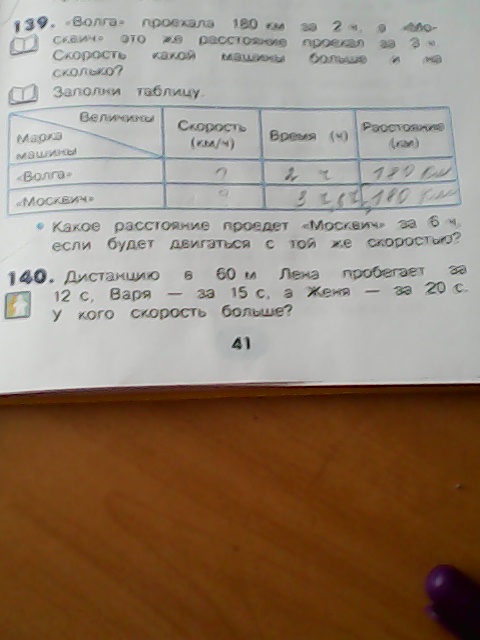 139. «Волга» проехала 180 км за 2 ч, а «Мо-
сквич» это же расстояние проехал за 3 ч.
Скорость какой машины больше и на
сколько?
Заполни таблицу.
Величины
Марка
машины
Скорость
(км/ч)
Время (ч)
Расстояние
(км)
«Волга» ? 2 ч 180 км
«Москвич» ? 3 ч 180 км
• Какое расстояние проедет «Москвич» за 6 ч,
если будет двигаться с той же скоростью?
140. Дистанцию в 60 м Лена пробегает за
12 с, Варя — за 15 с, а Женя — за 20 с.
У кого скорость больше?
41